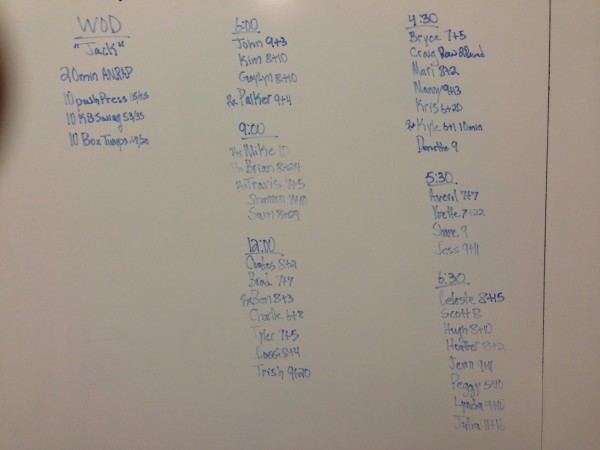 WOD
"Jack"
20min AMRAP
10 push Press 115/85
10 KB Swing 53/35
10 Box Jumps
6:00
John 9+3
Kim 8+10
Gaylyn 8+10
Rx Palker 9+4
9:00
Rx Mike 10
Rx Brian
Rx Travis 7+5
Shannon
Sam 8+29
12:00
8+2
Brad 7+7
Rx Ben 8+3
Charlie 6+8
Tyler 7+5
8+4
Trish 9+20
4:30
Bryce 7+5
Craig
Mari 8+2
Manny 9+3
Kris 6+20
Rx Kyle 6+1 10min
Danette 9
5:30
7+7
Yvette 7+22
Shane 9
Jess 9+11
6:30
Celeste 8+15
Scott 8
Hugh 8+10
Heather 8+2
Jenn 9+1
Peggy 5+10
Lynda 9+10
Julia 11+16